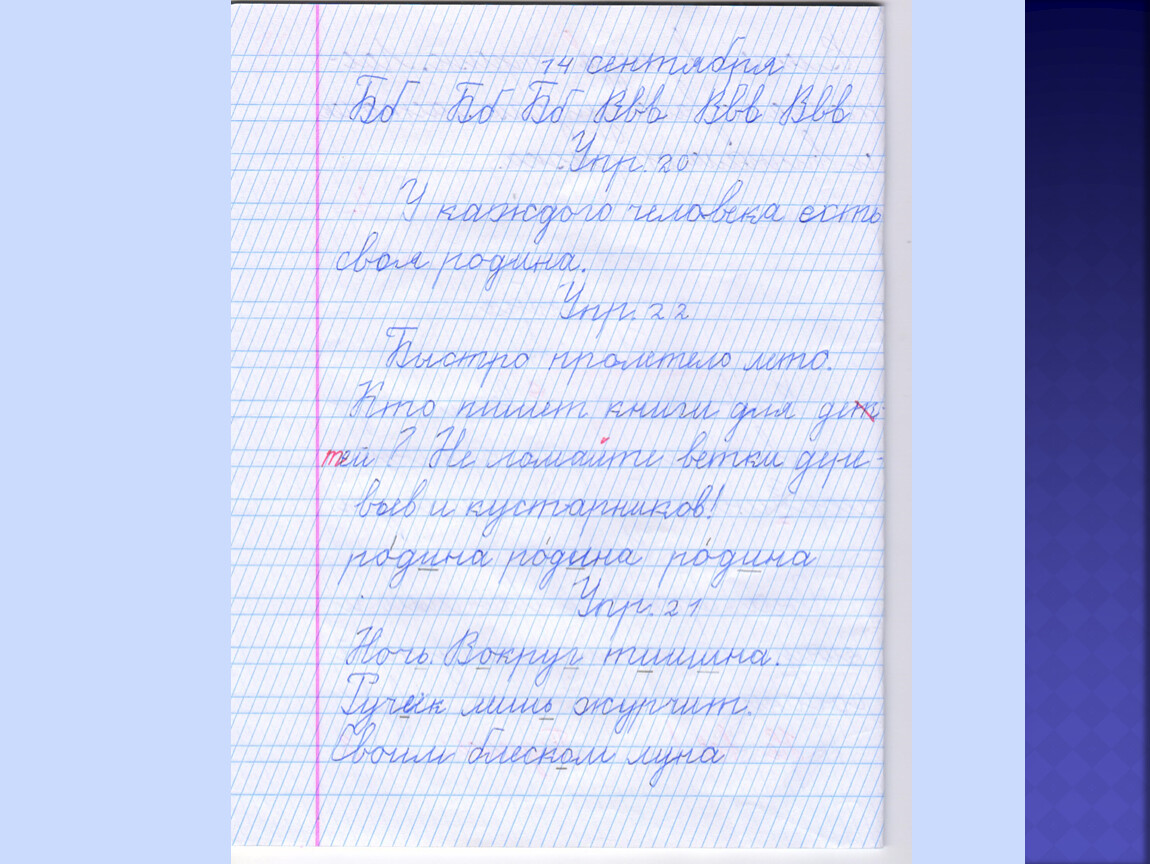 14 сентября
Бб Бб Бб Ввв Ввв Ввв
Упр. 20
У каждого человека есть
своя родина.
Упр. 22
Быстро пролетело лето.
Кто пишет книги для дет-
тей? Не ломайте ветки дере-
вьев и кустарников!
ро́дина ро́дина ро́дина
Упр. 21
Ночь. Вокруг тишина.
Ручеёк лишь журчит.
Своим блеском луна